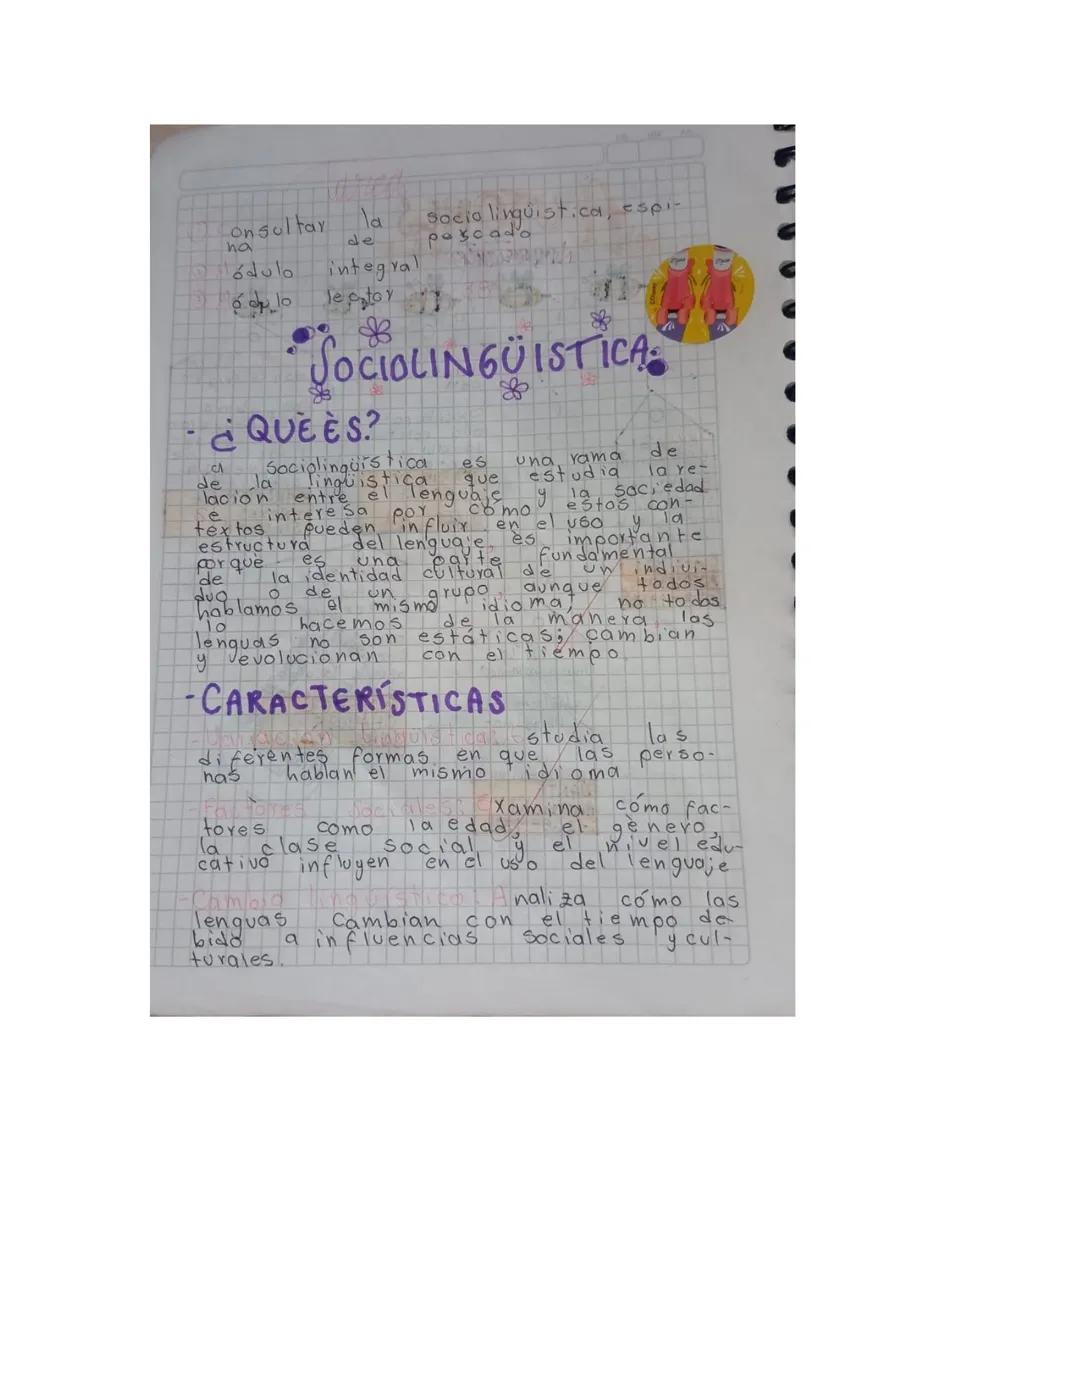 Tarea
① Consultar la sociolingüistica, espi-
na de pescado
② Módulo integral
③ Módulo lector
SOCIOLINGÜISTICA:
- ¿QUÈ ÈS?
La Sociolingüistica es una rama de
de la lingüistica que estudia la re-
lación entre el lenguaje y la sociedad
Se interesa por cómo estos con-
textos pueden influir en el uso y la
estructura del lenguaje, es importante
porque es una parte fundamental
de la identidad cultural de un indivi-
duo o de un grupo, aunque todos
hablamos el mismo idioma, no todos
lo hacemos de la manera, las
lenguas no son estáticas; cambian
y evolucionan con el tiempo
- CARACTERÍSTICAS
- Variación lingüística: Estudia las
diferentes formas en que las perso-
nas hablan el mismo idioma
- Factores Sociales: Examina cómo fac-
tores como la edad, el gènero,
la clase social y el nivel edu-
cativo influyen en el uso del lenguaje
- Cambio lingüístico: Analiza cómo las
lenguas Cambian con el tiempo de-
bido a influencias sociales y cul-
turales.